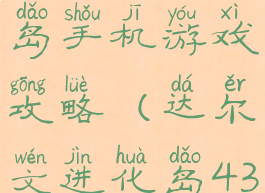 dǎo shǒu jī yóu xì
岛手机游戏
gōng lüè dá ěr
攻略（达尔
wén jìn huà dǎo
文进化岛43